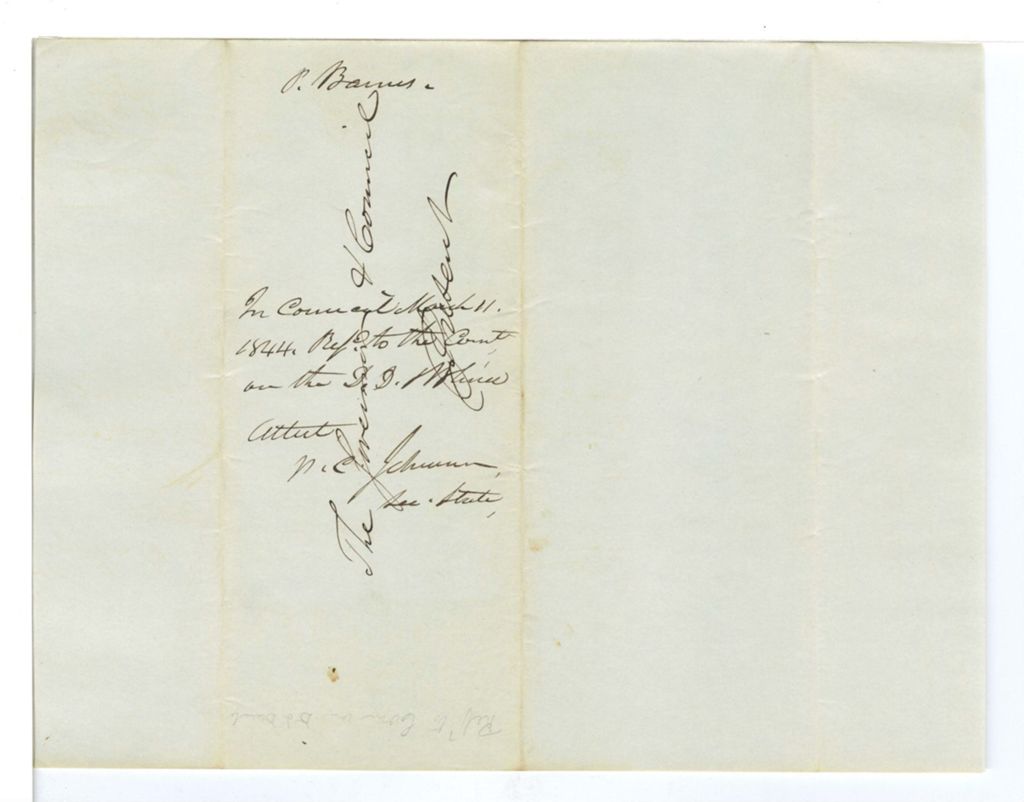 P. Barnes.
The Governor & Council
In Council March 11.
1844. Ref.d to the Comt.
on the D. D. & Blind
Attest
P. C. Johnson,
Sec. State,
Ref.d to Com. on D &